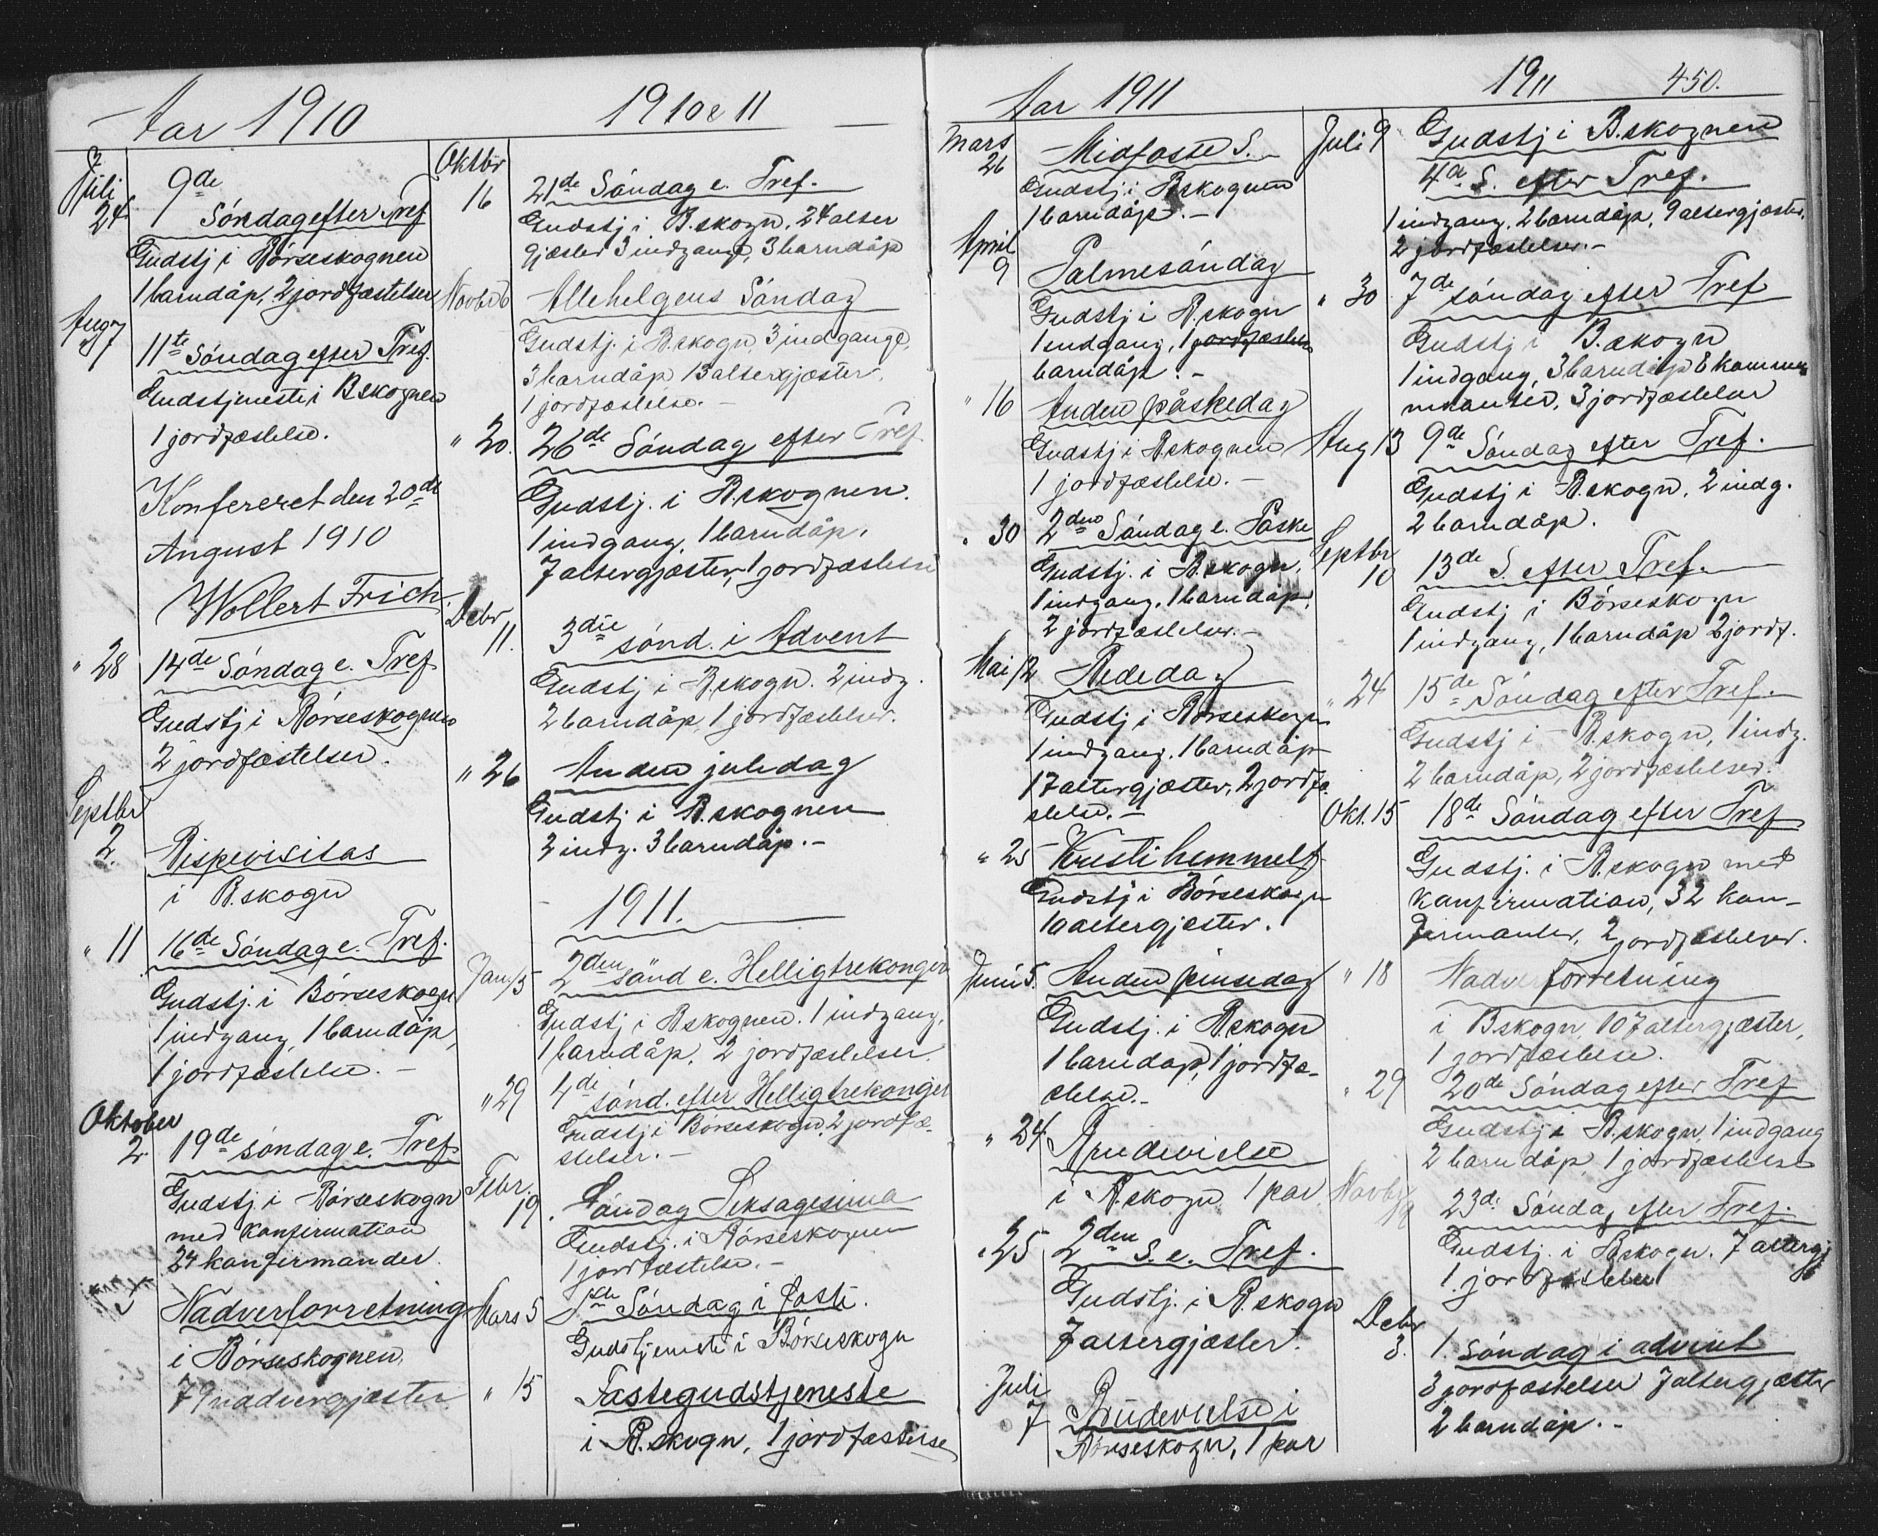 Aar 1910
Juli
24
9de
Søndag efter Tref
Gudstj i Børseskognen
1 barndåp, 2 jordfæstelser
Aug 7
11te Søndag efter Tref.
Gudstjeneste i Bskognen
1 jordfæstelse.
Konfereret den 20de
August 1910
Wollert Frich.
" 28
14de Søndag e. Tref
Gudstj i Børseskognen
2 jordfæstelser.
Septbr
2.
Bispevisitas
i B.skogn
" 11
16de Søndag e. Tref.
Gudstj. i Børseskogn
1 indgang, 1 barndåp,
1 jordfæstelse. -
Oktober
2
19de søndag e. Tref
Gudstj. i Børseskogn
med konfirmation
24 konfirmander.
Nadverforretning
i Børseskognen.
79 nadvergjæster
1910 & 11
Oktbr
16
21de Søndag e. Tref.
Gudstj i B.skogn, 24 alter
gjæster 3 indgange, 3 barndåp
Novbr 6
Allehelgens Søndag
Gudstj. i B.skogn, 3 indgange,
3 barndåp 13 altergjæster,
1 jordfæstelse. -
" 20.
26de Søndag efter Tref.
Gudstj. i B.skognen.
1 indgang, 1 barndåp,
7 altergjæster, 1 jordfæstelse
Debr
11.
3die sønd. i Advent
Gudstj i B.skogn. 2 indg.
2 barndåp, 1 jordfæstelser.
" 26
Anden juledag
Gudstj i B.skognen
3 indg. 3 barndåp. -
1911.
Jan 15
2den sønd e. Helligtrekonger
Gudstj i Bskognen. 1 indgang,
1 barndåp, 2 jordfæstelser.
" 29
4de sønd. efter Helligtrekonger
Gudstj i Børseskogn, 2 jordfæ-
stelser. -
Febr.
19.
Søndag Seksagesima
Gudstj. i Børseskognen
1 jordfæstelse. -
Mars 5
1ste Søndag i faste.
Gudstjeneste i Børseskogn
" 15
Fastegudstjeneste
i B.skogn, 1 jordfæstelse
Aar 1911
Mars
26
Midfaste S.
Gudstj i Bskognen
1 barndåp. -
April
9
Palmesøndag
Gudstj i B.skogn
1 indgang, 1 jordfæstelse
barndåp. -
" 16
Anden påskedag
Gudstj i Bskognen
1 jordfæstelse. -
" 30
2den Søndag e. Påske
Gudstj. i B.skogn,
1 indgang, 1 barndåp,
2 jordfæstelser. -
Mai 12
Bededag
Gudstj i Børseskogn
1 indgang, 1 barndåp
17 altergjæster, 2 jordfæ
stelse. -
" 25
Kristi himmelf.
Gudstj i Børseskogn
10 altergjæster.
Juni 5.
Anden pinsedag
Gudstj. i Bskogn
1 barndåp, 1 jordfæ-
stelse. -
" 24
Brudevielse
i B.skogn 1 par
" 25
2den S. e. Tref.
Gudstj. i B.skogn
7 altergjæster.
Juli
7
Brudevielse i
Børseskogn, 1 par
1911 450.
Juli 9
Gudstj i B.skognen
4de S. efter Tref.
1 indgang, 2 barndåp, 9 altergjæster,
2 jordfæstelser. -
" 30
7de søndag efter Tref
Gudstj i B.skogn
1 indgang, 3 barndåp 8 kommu
nikanter, 3 jordfæstelser
Aug 13
9de Søndag efter Tref.
Gudstj i B.skogn, 2 indg.
2 barndåp.
Septbr
10
13de S. efter Tref.
Gudstj i Børseskogn
1 indgang, 1 barndåp 2 jordf.
" 24
15de Søndag efter Tref.
Gudstj i B.skogn, 1 indg.
2 barndåp, 2 jordfæstelser.
Okt. 15
18de Søndag efter Tref
Gudstj. i B.skogn med
konfirmation, 32 kon-
firmanter, 2 jordfæstelser.
" 18
Nadverforretning
i Bskogn, 107 altergjæster,
1 jordfæstelse.
" 29
20de Søndag efter Tref
Gudstj i B.skogn, 1 indgang
2 barndåp, 1 jordfæstelse
Novbr
23de Søndag efter Tref.
Gudstj. i Bskogn. 7 altergj
1. jordfæstelse
Debr
3.
1. Søndag i advent
3 jordfæstelser 7 altergjæster
2 barndåp. -